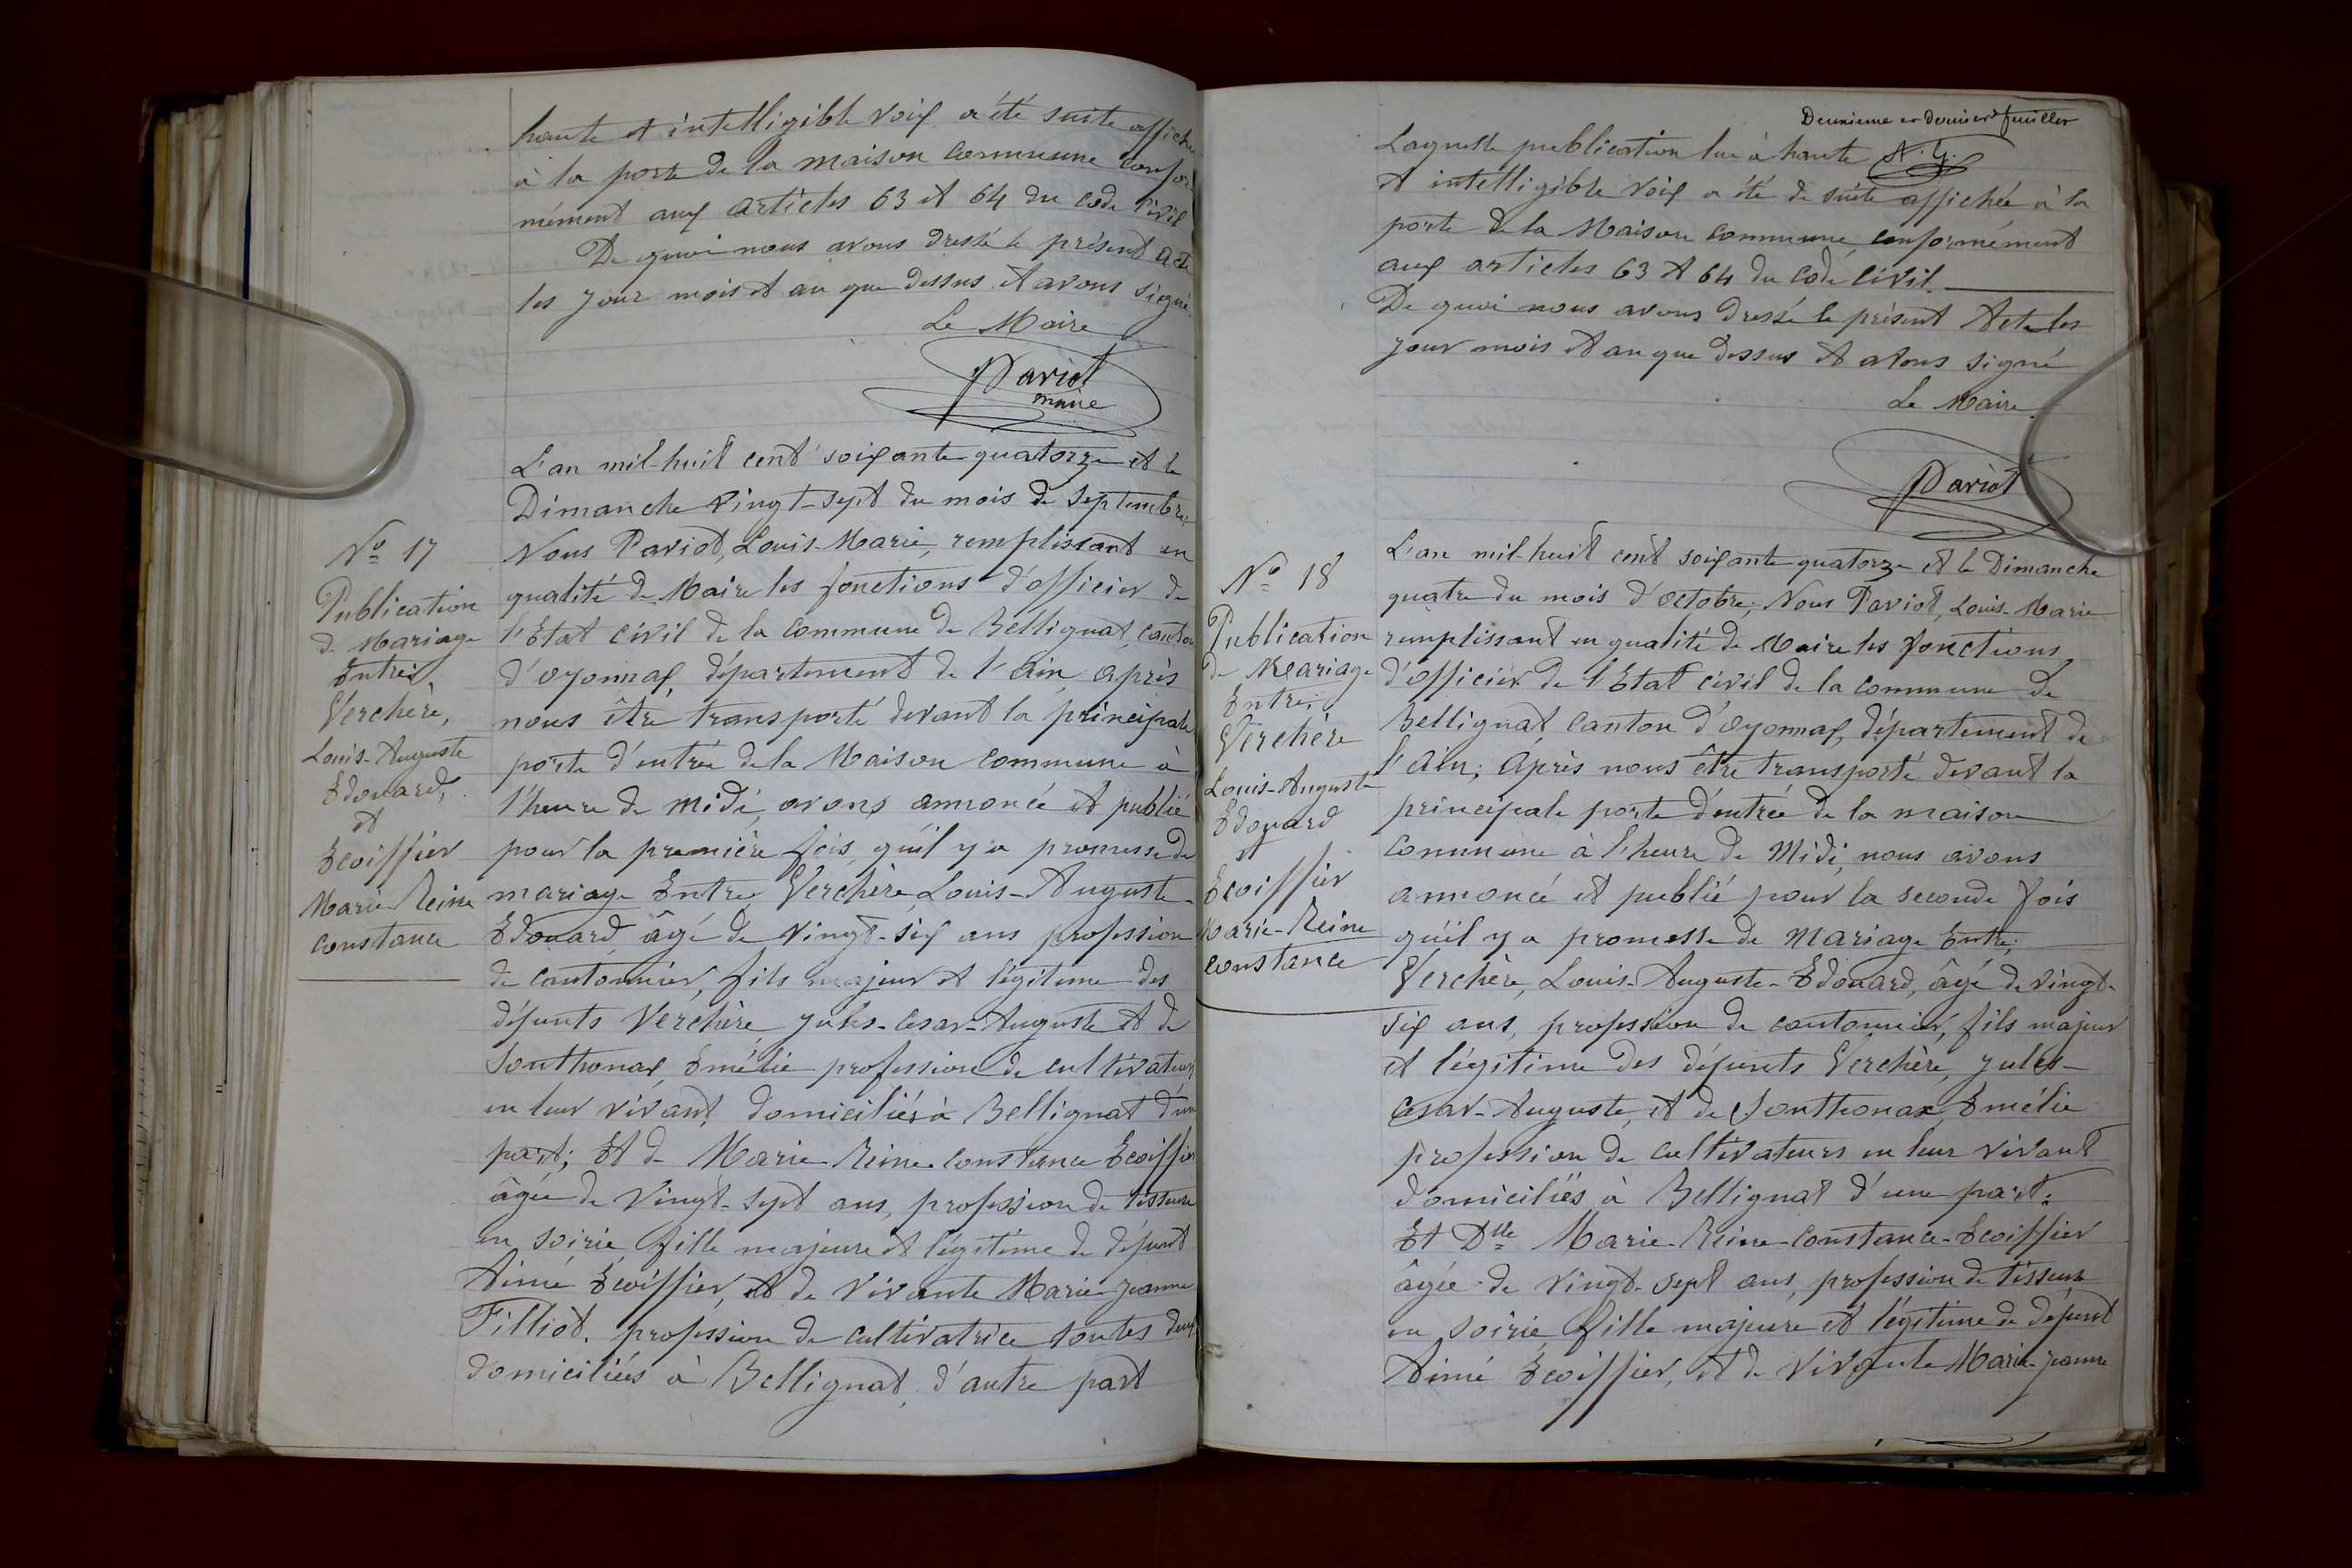 haute et intelligible voix a été suite affichée
à la porte de la maison commune confor-
mément aux articles 63 et 64 du code civil
De quoi nous avons dressé le présent acte
les jour mois et an que dessus et avons signé.
Le Maire
Pariot
maire
L'an mil-huit cent soixante quatorze et le
Dimanche vingt-sept du mois de septembre
Nous Paviot, Louis-Marie, remplissant en
qualité de Maire les fonctions d'officier de
l'Etat civil de la commune de Bellignat, canton
d'oyonnax, département de l'ain après
nous être transporté devant la principale
porte d'entrée de la Maison commune à
l'heure de midi, avons annoncé et publié
pour la première fois, qu'il y a promesse de
mariage Entre, Verchère Louis-Auguste-
Edouard âgé de vingt-six ans profession
de cantonnier, fils majeur et légitime des
défunts Verchère, Jules-Cesar-Auguste et de
Sonthonax, Emélie profession de cultivateurs
en leur vivant, domiciliés à Bellignat d'une
part; Et de Marie-Reine-Constance Ecoiffier
âgée de vingt-sept ans, profession de tisseuse
en soirie, fille majeure et légitime de défunt
Aimé Ecoiffier, et de vivante Marie-Jeanne
Filliot. profession de cultivatrice toutes deux
domiciliées à Bellignat, d'autre part
No 17
Publication
de Mariage
Entre,
Verchère,
Louis-Auguste
Edouard,
et
Ecoiffier
Marie Reine
constance
Deuxième et dernier feuillet
Laquelle publication lue à haute
et intelligible voix a été de suite affichée à la
porte de la Maison commune, conformément
aux articles 63 et 64 du code civil.
De quoi nous avons dressé le présent Acte les
jour mois et an que dessus et avons signé
Le Maire.
Pariot
L'an mil-huit cent soixante quatorze et le Dimanche
quatre du mois d'octobre; Nous Paviot, Louis-Marie
remplissant en qualité de Maire les fonctions
d'officier de l'Etat civil de la commune de
Bellignat, canton d'oyonnax, département de
l'ain; après nous être transporté devant la
principale porte d'entrée de la maison
commune à l'heure de Midi, nous avons
annoncé et publié pour la seconde fois
qu'il y a promesse de Mariage Entre;
Verchère, Louis-Auguste-Edouard, âgé de vingt-
six ans, profession de cantonnier, fils majeur
et légitime des défunts Verchère, Jules-
Cesar-Auguste, et de Sonthonax, Emélie
profession de cultivateurs en leur vivant
domiciliés à Bellignat d'une part:
Et Dlle Marie-Reine-Constance-Ecoiffier
âgée de vingt-sept ans, profession de tisseuse
en soirie, fille majeure et légitime de défunt
Aimé Ecoiffier, et de vivante Marie-Jeanne
No 18
Publication
de Mariage
Entre;
Verchère
Louis-Auguste
Edouard
et
Ecoiffier
Marie-Reine
constance